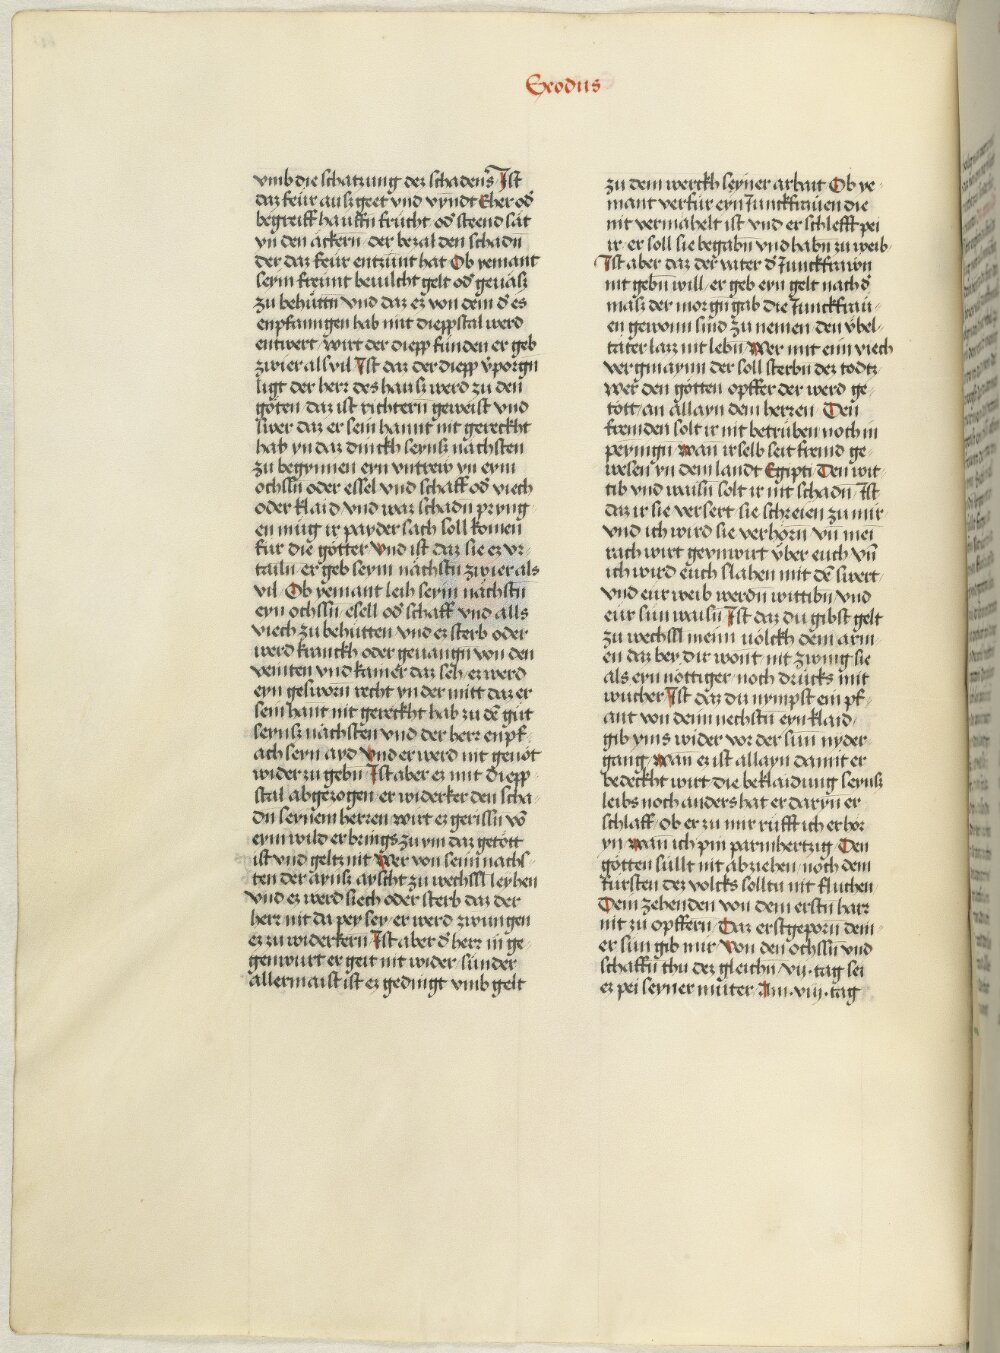 Exodus
vmb die schatzung der schadens Ist
daz feür ausgeet vnd vyndt Eher od̄
begreiff hauffn frücht od̄ steend sät
yn den äckern der bezal den schadn
der daz feür entzünt hat Ob yemant
seym freünt beuilcht gelt od̄ geuäss
zu behüttn vnd daz ez von dem d̄ es
enpfanngen hab mit dieppstal werd
entwert wirt der diepp funden er geb
zwier als vil Ist daz der diepp v̈porgn
ligt der herr des hauss werd zu den
göten daz ist richtern geweist vnd
swer daz er sein hannt nit gereckht
hab yn daz dinckh seynss nächsten
zu begynnen eyn vntrew yn eym
ochssn oder essel vnd schaff od̄ viech
oder klaid vnd waz schadn pryng-
en müg ir payder sach soll komen
für die götter Vnd ist daz sie ez vr-
tailn er geb seym nächstn zwier als
vil Ob yemant leih seym nächstn
eyn ochssn esell od̄ schaff vnd alls
viech zu behütten vnd ez sterb oder
werd kranckh oder geuangn von den
veinten vnd kainer daz seh ez werd
eyn gesworn recht yn der mitt daz er
sein hant nit gereckht hab zu dē güt
seynss nächsten vnd der herr enpf-
ach seyn ayd Vnd er werd nit genöt
wider zu gebn Ist aber ez mit diepp
stal abgezogen er widerker den scha-
dn seynem herren wirt ez gerissn vō
eym wild er brings zu ym daz getött
ist vnd geltz nit Wer von seim nächs-
ten der aynss ayscht zu wechssl leyhen
vnd ez werd siech oder sterb daz der
herr nit da pey sey er werd zwungen
ez zu widerkern Ist aber d̄ herr in ge-
genwürt er geit nit wider sünder
allermaist ist ez gedingt vmb gelt
zu dem werckh seyner arbait Ob ye-
mant verfür eyn Junckfrauen die
nit vermähelt ist vnd er schlefft pei
ir er soll sie begabn vnd habn zu weib
Ist aber daz der vater d̄ Junckfrawn
nit gebn will er geb eyn gelt nach d̄
mass der morgngab die Junckfrau-
en gewonn sind zu nemen den v̈bel-
täter lazz nit lebn Wer mit eim viech
vergmaynn der soll sterbn dez todtz
wer den götten opffer der werd ge-
tött an allayn dem herren Den
fremden solt ir nit betrüben noch in
peyngn wan ir selb seit fremd ge-
wesen yn dem landt Egipti Den wit-
tib vnd waisn solt ir nit schadn Ist
daz ir sie versert sie schreien zu mir
vnd ich wird sie verhörn vn mei
rach wirt geunwirt v̈ber euch vn̄
ich wird euch slahen mit dē swert
vnd eur weib werdn wittibn vnd
eür sün waisn Ist daz du gibst gelt
zu wechssl meim uölckh dem arm
en daz bey dir wont nit zwing sie
als eyn nöttiger noch drücks mit
wucher Ist daz du nympst ein pf-
ant von deim nechstn eyn klaid
gib yms wider vor der sun nyder-
gang wan ez ist allayn damit er
bedeckht wirt die beklaidung seynss
leibs noch anders hat er daryn er
schlaff Ob er zu mir rüfft ich erhör
yn wan ich pin parmhertzig Den
götten süllt nit abziehen noch dem
fürsten dez volcks solltu nit fluchen
Dein zehenden von dem erstn harr
nit zu opffern Daz erstgeporn dein-
er sün gib mir Von den ochssn vnd
schaffn thu dez gleichn vij. tag sei
ez pei seyner müter Am .viij. tag